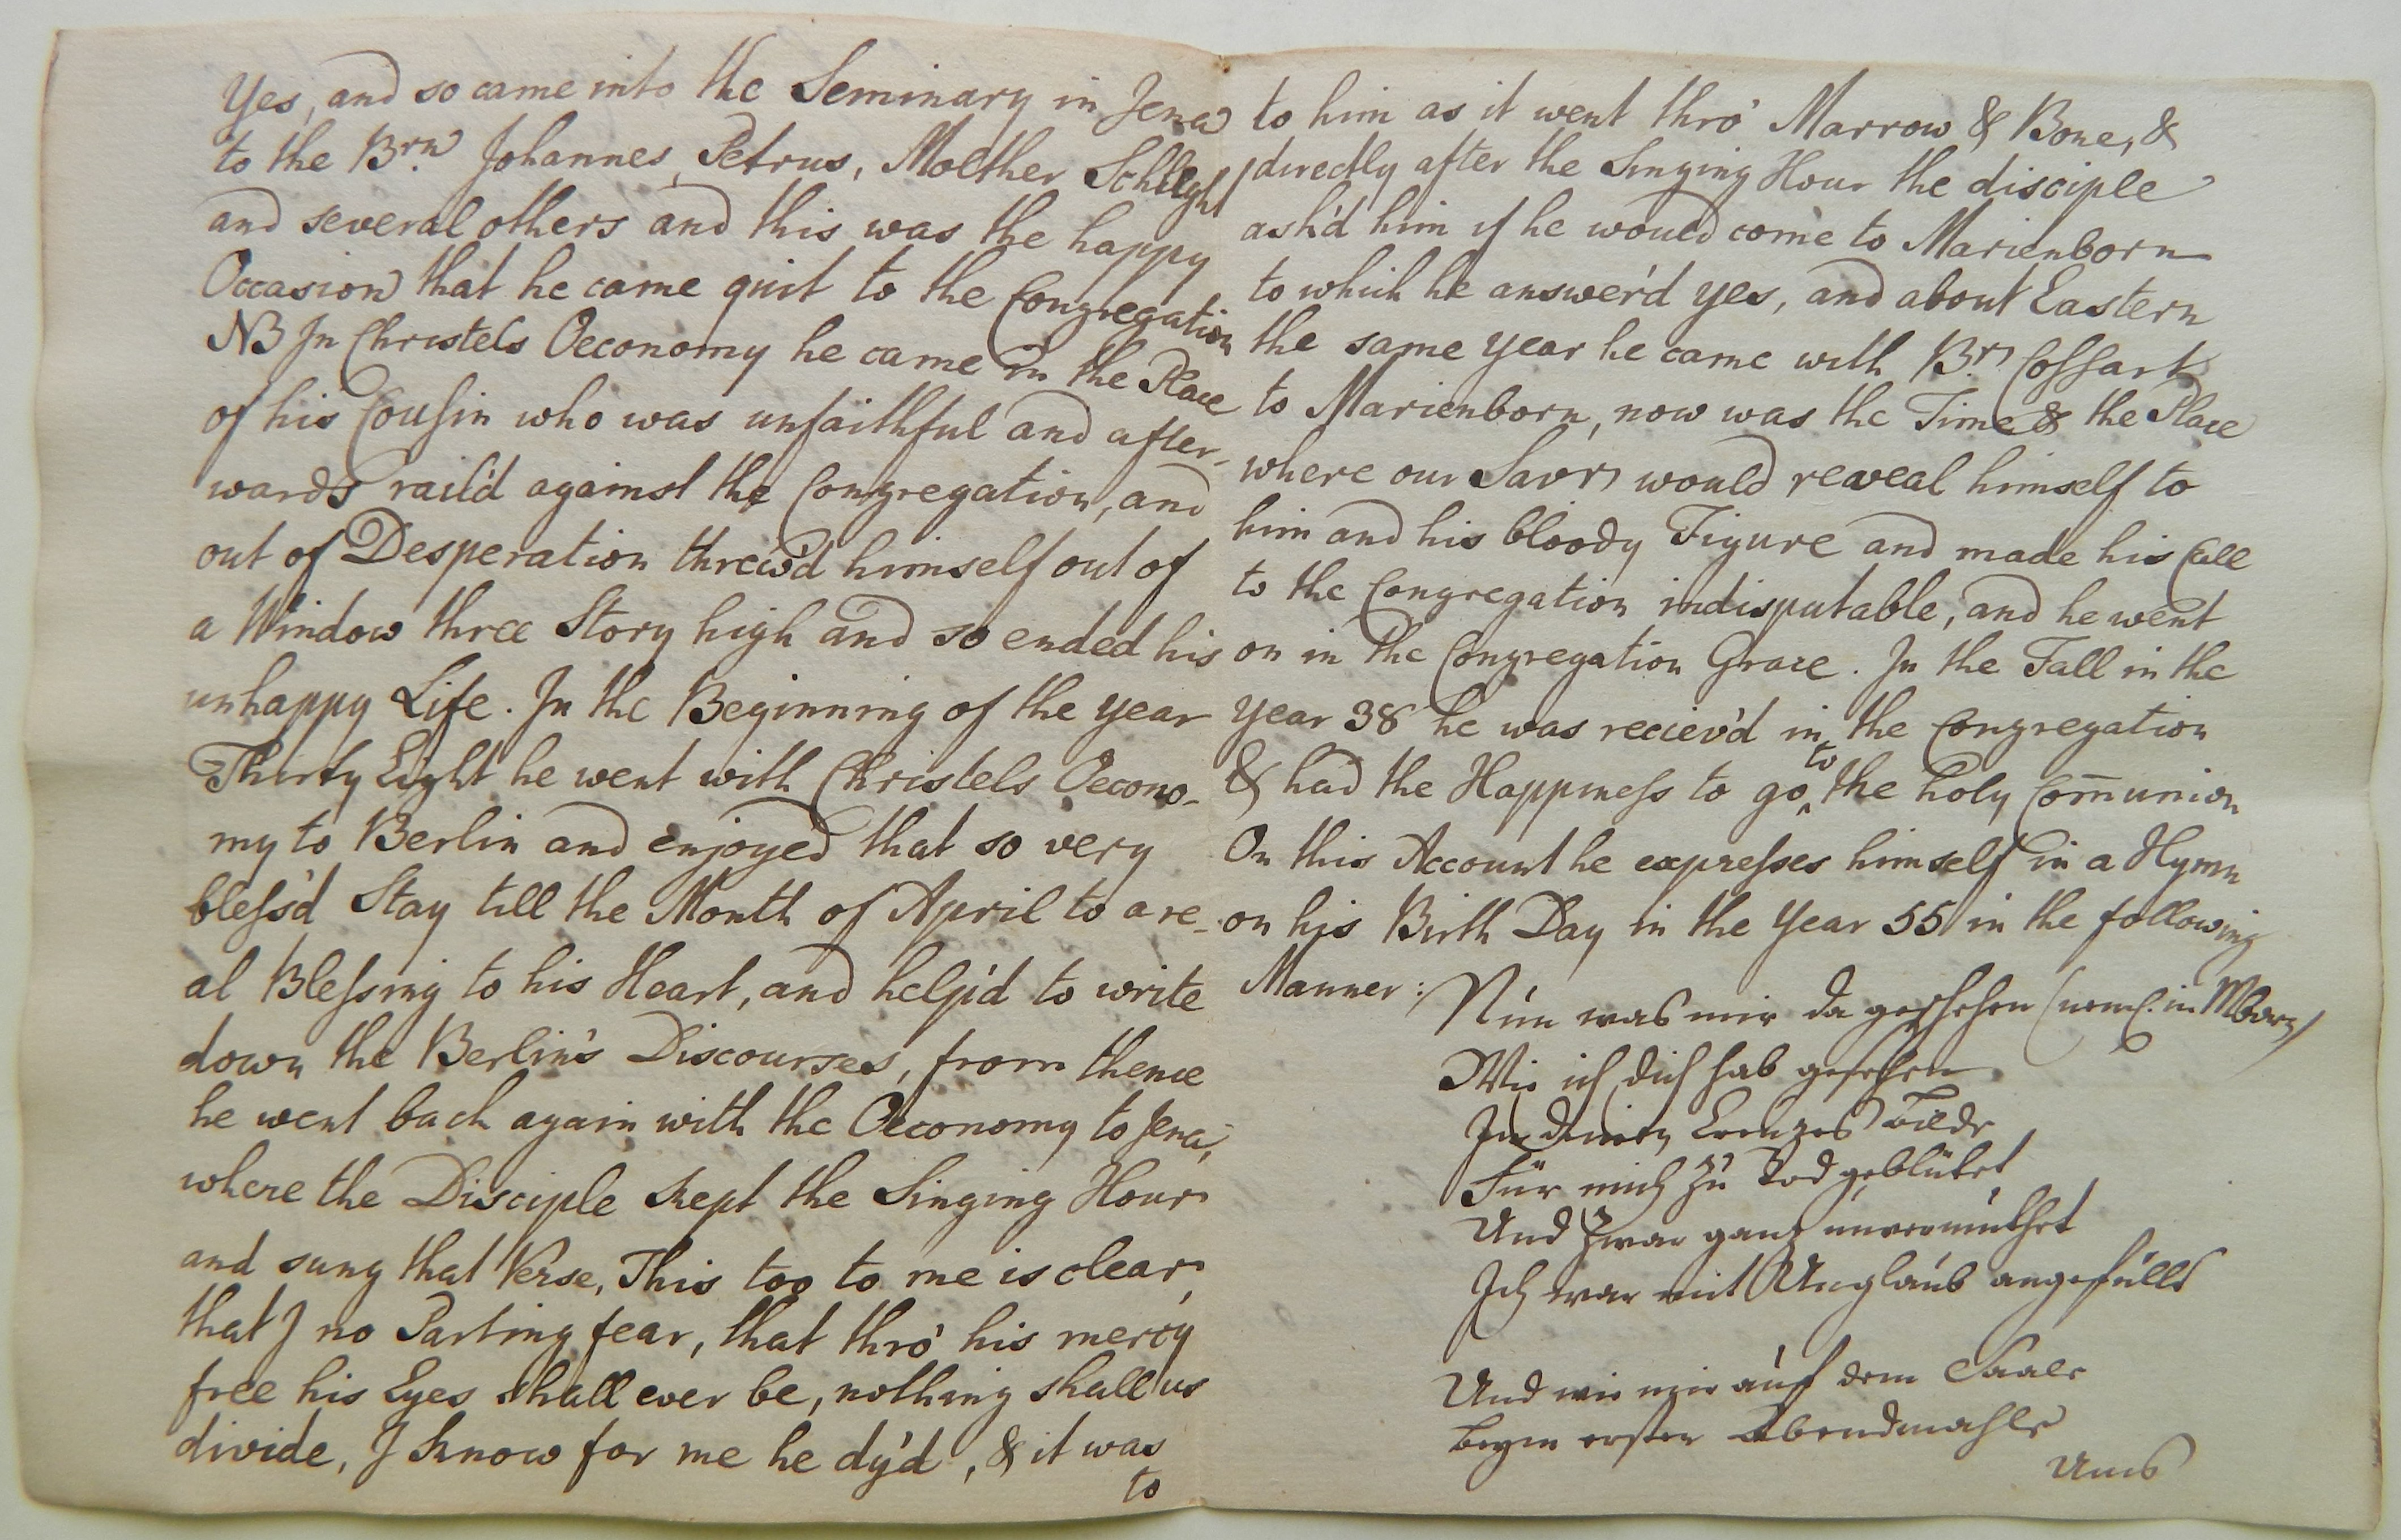 Yes, and so came into the Seminary in Jena
to the Brn. Johannes, Petrus, Molther Schlegl
and several others and this was the happy
Occasion that he came quit to the Congregation
NB In Christels Oeconomy he came in the Place
of his Cousin who was unfaithful and after-
wards rail'd against the Congregation, and
out of Desperation threw'd himself out of
a Window three Story high and so ended his
unhappy Life. In the Beginning of the year
Thirty Eight he went with Christels Oecono-
my to Berlin and enjoyed that so very
bless'd Stay till the Month of April to a re-
al Blessing to his Heart, and help'd to write
down the Berlin's Discourses, from thence
he went back again with the Oeconomy to Jena,
where the Disciple kept the Singing Hour
and sung that Verse, This too to me is clear,
that I no Parting fear, that thro' his mercy
free his Eyes shall ever be, nothing shall us
divide, I know for me he dy'd, & it was
to
to him as it went thro' Marrow & Bone, &
directly after the Singing Hour the disciple
ask'd him if he would come to Marienborn
to which he answer'd yes, and about Eastern
the same year he came with Br. Cossart
to Marienborn, now was the Time & the Place
where our Savr would reveal himself to
him and his bloody Figure and made his Call
to the Congregation indisputable, and he went
on in the Congregation Grace. In the Fall in the
year 38 he was reciev'd in the Congregation
& had the Happiness to go to the holy Com̄union
On this Account he expresses himself in a Hymn
on his Birth Day in the Year 55 in the following
Manner:
Nun was mir da geschehen (neml. in Mborn)
Wie ich dich hab gesehen
In deines Creuzes Bilde
Für mich zu Tod geblütet
Und zwar ganz unvermuthet
Ich war mit Unglaub angefüllt
Und wie mir auf dem Saale
beym ersten Abendmahle
Ums